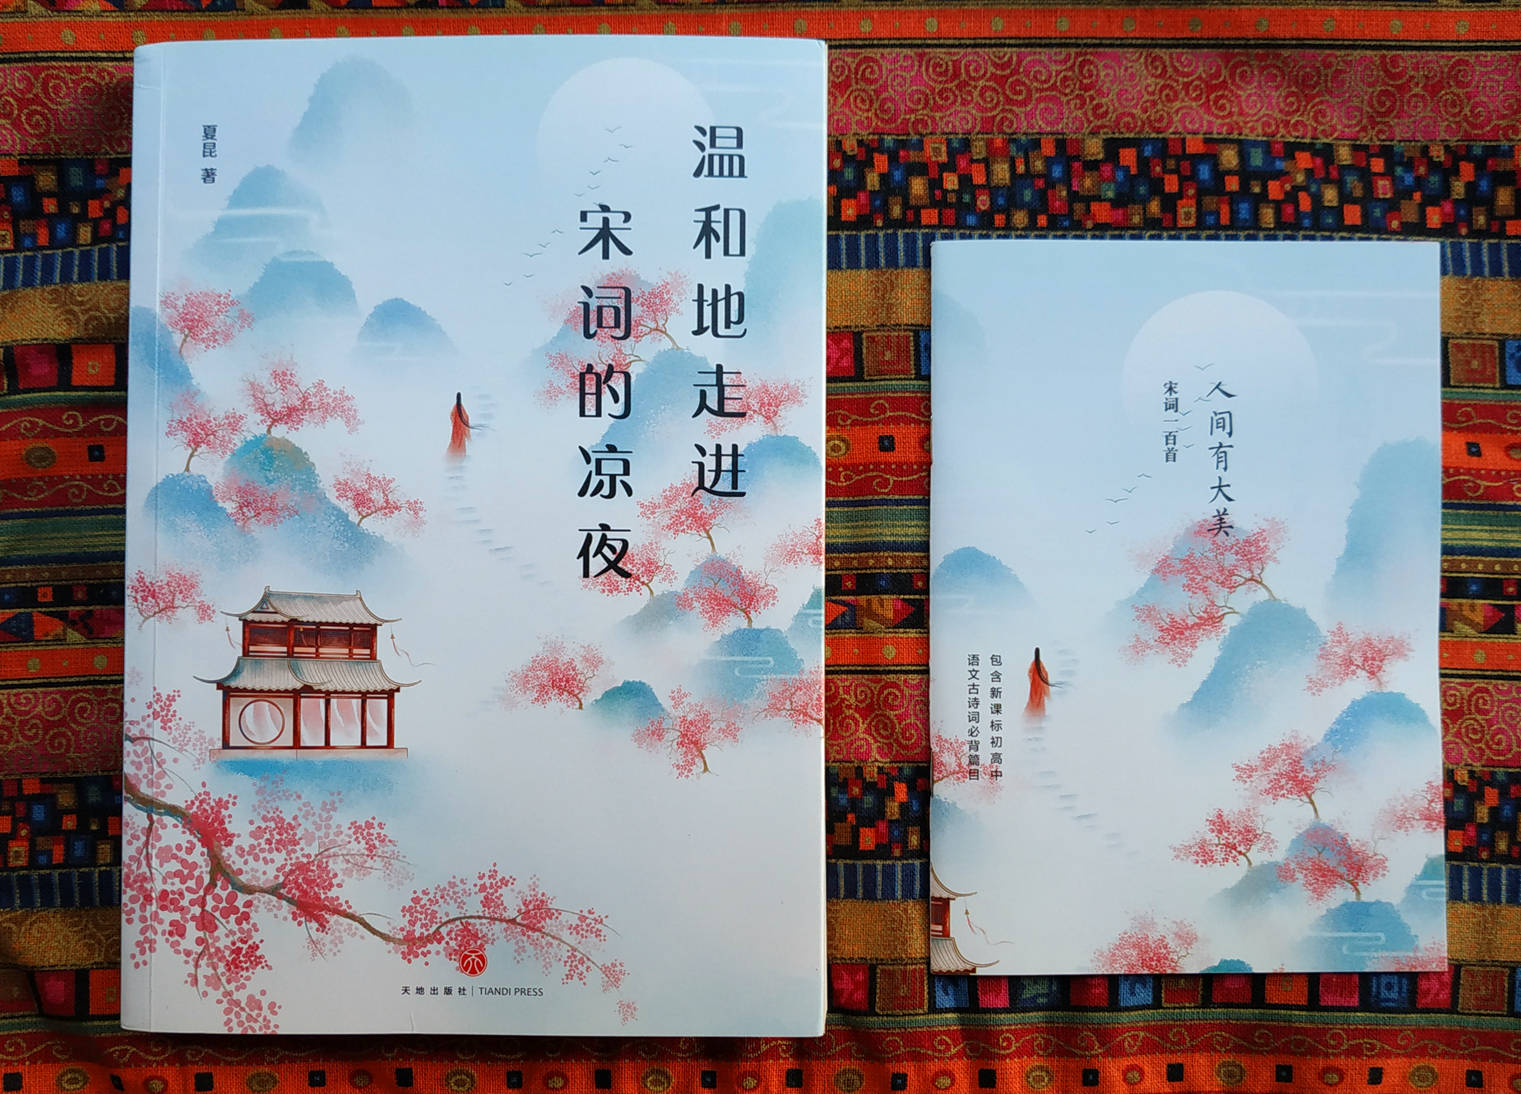 温和地走进
宋词的凉夜
夏昆 著
天地出版社 | TIANDI PRESS
人间有大美
宋词一百首
包含新课标初高中
语文古诗词必背篇目